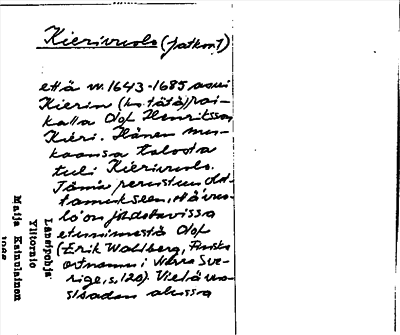 Kierivuolo (jatkoa 1)
että v. 1643-1685 asui
Kierin (ks. tätä) pai-
kalla Olof Henriksson
Kieri. Hänen mu-
kaansa talosta
tuli Kierivuolo.
Tämä perustuu olet-
tamukseen, että vuo-
lo on johdettavissa
etunimestä Olof
(Erik Wahlberg, Finska
ortnamn i Norra Sve-
rige, s. 120). Vielä vuo-
sisadan alussa
Länsipohja
Ylitornio
Maija Kainulainen